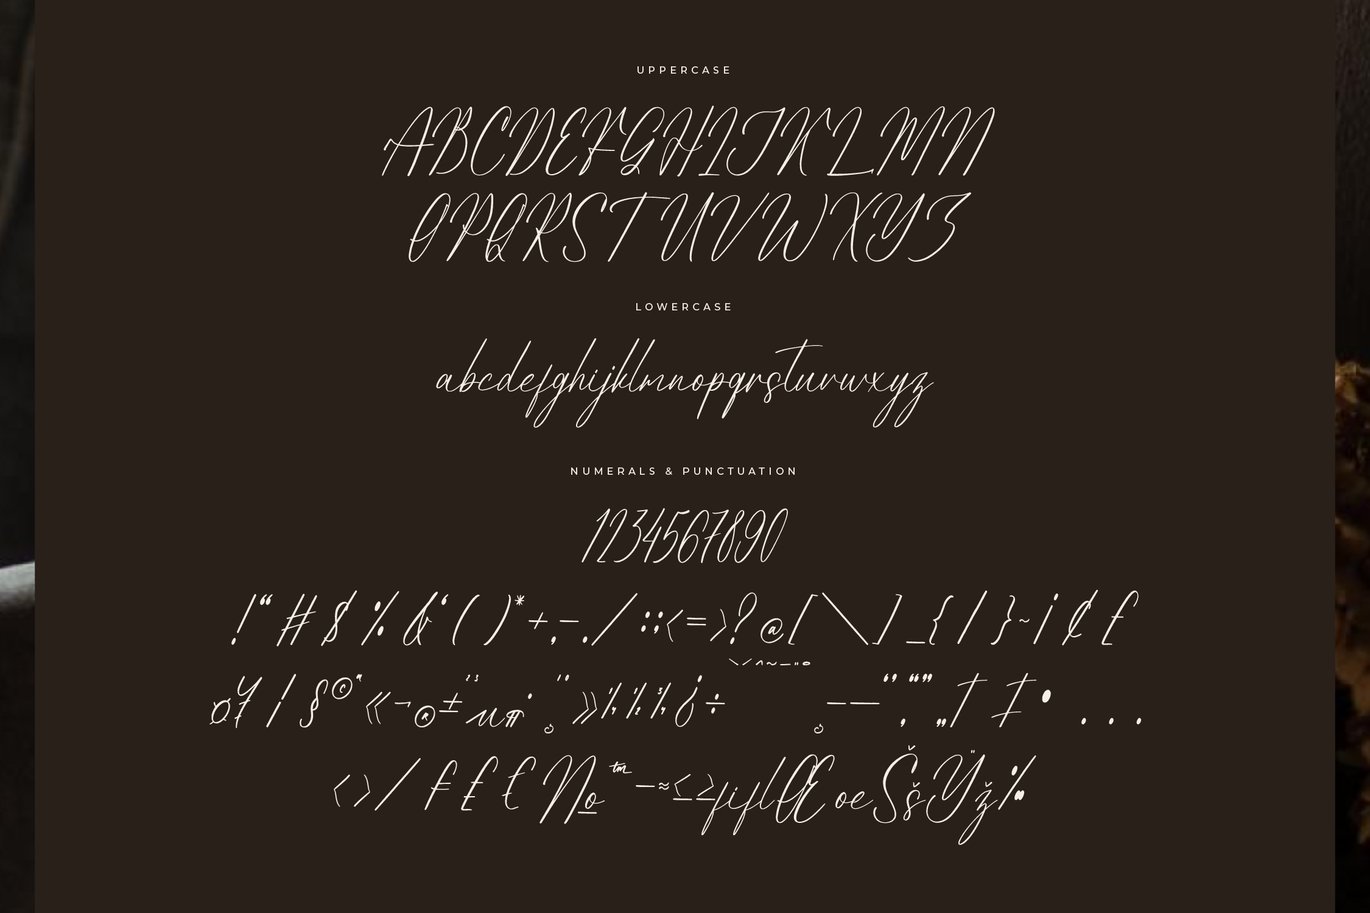 UPPERCASE
ABCDEFGHIJKLMN
OPQRSTUVWXYZ
LOWERCASE
abcdefghijklmnopqrstuvwxyz
NUMERALS & PUNCTUATION
1234567890
!“#$%&‘()*+,-./:;<=>?@[\]_{|}~¡¢£
¤¥¦§¨©ª«¬®¯°±²³´µ¶·¸¹º»¼½¾¿÷–—‘’‚“”„†‡•…
‹›⁄₣₤€№™−≈≤≥fiflŒœŠšŸž‰